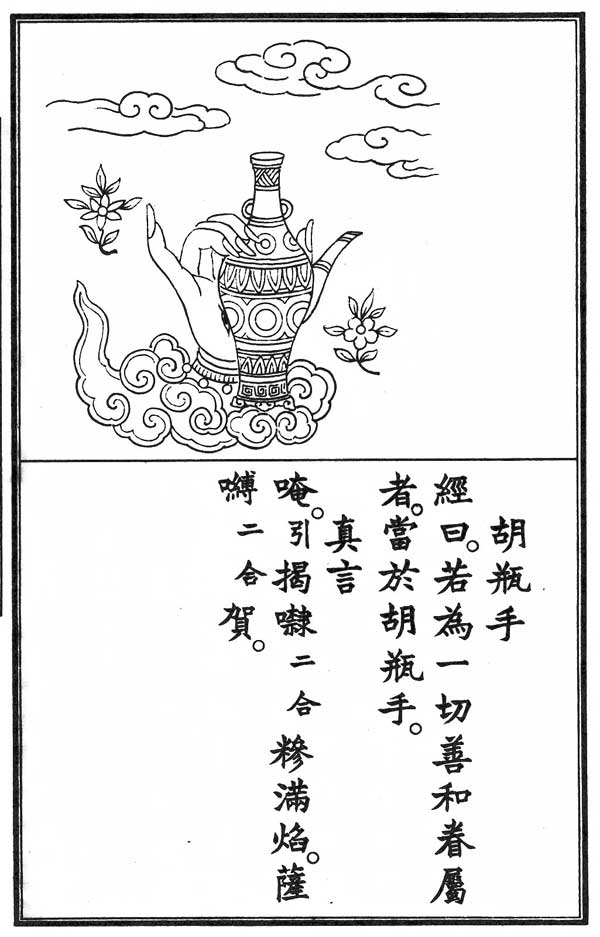 胡瓶手
經曰。若為一切善和眷屬
者。當於胡瓶手。
真言
唵。引揭㘑二合糝滿焰。薩
嚩二合賀。